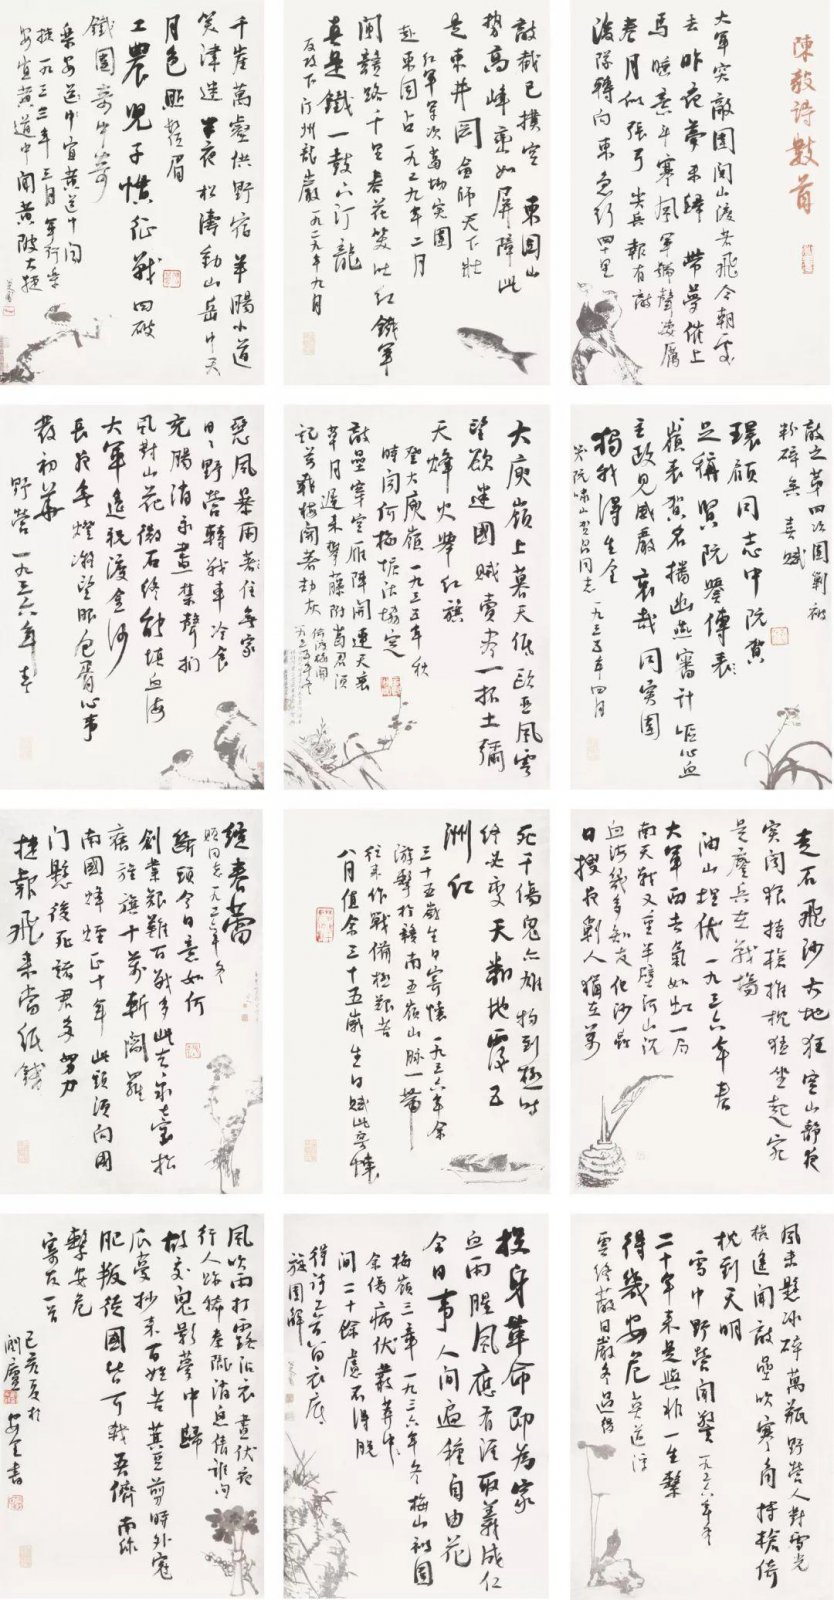 陳毅詩數首
大軍突敵圍關山渡若飛今朝何處
去昨夜夢未歸帶夢催上
馬睡意斗寒風軍號聲凌厲
春月似張弓尖兵報有敵
後隊轉向東急行四十里
敵截已撲空東固山
勢高峰巒如屏障此
是東井岡會師天下壯
紅軍軍次葛坳突圍
赴東固口占一九二九年二月
閩贛路千里春花笑吐紅鐵軍
真是鐵一鼓下汀龍
反攻下汀州龍巖一九二九年九月
千崖萬壑供野宿羊腸小道
笑津迷半夜松濤動山岳中天
月色照鬚眉
工農兒子慣征戰四破
鐵圍奇中奇
樂安道中宜黃道中聞
捷一九三三年三月軍行樂
安宜黃道中聞黃陂大捷
敵之第四次圍剿被
粉碎矣喜賦
環顧同志中阮賀
足稱賢阮譽傳
嶺表賀名播幽燕審計嘔心血
主政見威嚴哀哉同突圍
獨我得生全
哭阮嘯仙賀昌同志一九三五年四月
大庾嶺上暮天低歐亞風雲
望欲迷國賊賣盡一抔土彌
天烽火舉紅旗
登大庾嶺一九三五年秋
時聞何梅塘沽協定
敵壘穿空雁陣開連天衰
草月遲來攀藤附葛君須
記萬載梅關著劫灰
偷渡梅關一九三五年冬
惡風暴雨著住無家
日日野營轉戰車冷食
充腸消永晝禁聲捫
虱對山花微石終能填血海
大軍遙祝渡金沙
長夜無燈凝望眼包胥心事
發初華
野營一九三六年春
走石飛沙大地狂空山靜夜
突聞狼持槍推枕猛坐起宛
是鏖兵在戰場
油山埋伏一九三六年春
大軍西去氣如虹一局
南天戰又重半壁河山沉
血海幾多知友化沙蟲
日搜夜剿人猶在萬
死千傷鬼亦雄物到極時
終必變天翻地覆五
洲紅
三十五歲生日寄懷一九三六年余
游擊於贛南五嶺山脈一帶
往來作戰備極艱苦
八月值余三十五歲生日賦此寄懷
綻春蕾
贈同志一九三六年冬
斷頭今日意如何
創業艱難百戰多此去泉臺招
舊旌旗十萬斬閻羅
南國烽煙正十年此頭須向國
門懸後死諸君多努力
捷報飛來當紙錢
風來懸冰碎萬瓶野營人對雪光
橫遙聞敵壘吹寒角持槍倚
枕到天明
雪中野營聞警一九三六年冬
二十年來是與非一生繫
得幾安危莫道浮
雲終蔽日嚴冬過盡
投身革命即為家
血雨腥風應有涯取義成仁
今日事人間遍種自由花
梅嶺三章一九三六年冬梅山被圍
余傷病伏叢莽中
間二十餘慮不得脫
得詩三首留衣底
旋圍解
風吹雨打露沾衣晝伏夜
行人跡稀秦隴消息倩誰問
故交鬼影夢中歸
瓜蔓抄來百姓苦萁豆剪時外寇
肥叛徒國皆可戮吾儕南
繫安危
寄友一首
己亥夏於
潤廬安全書